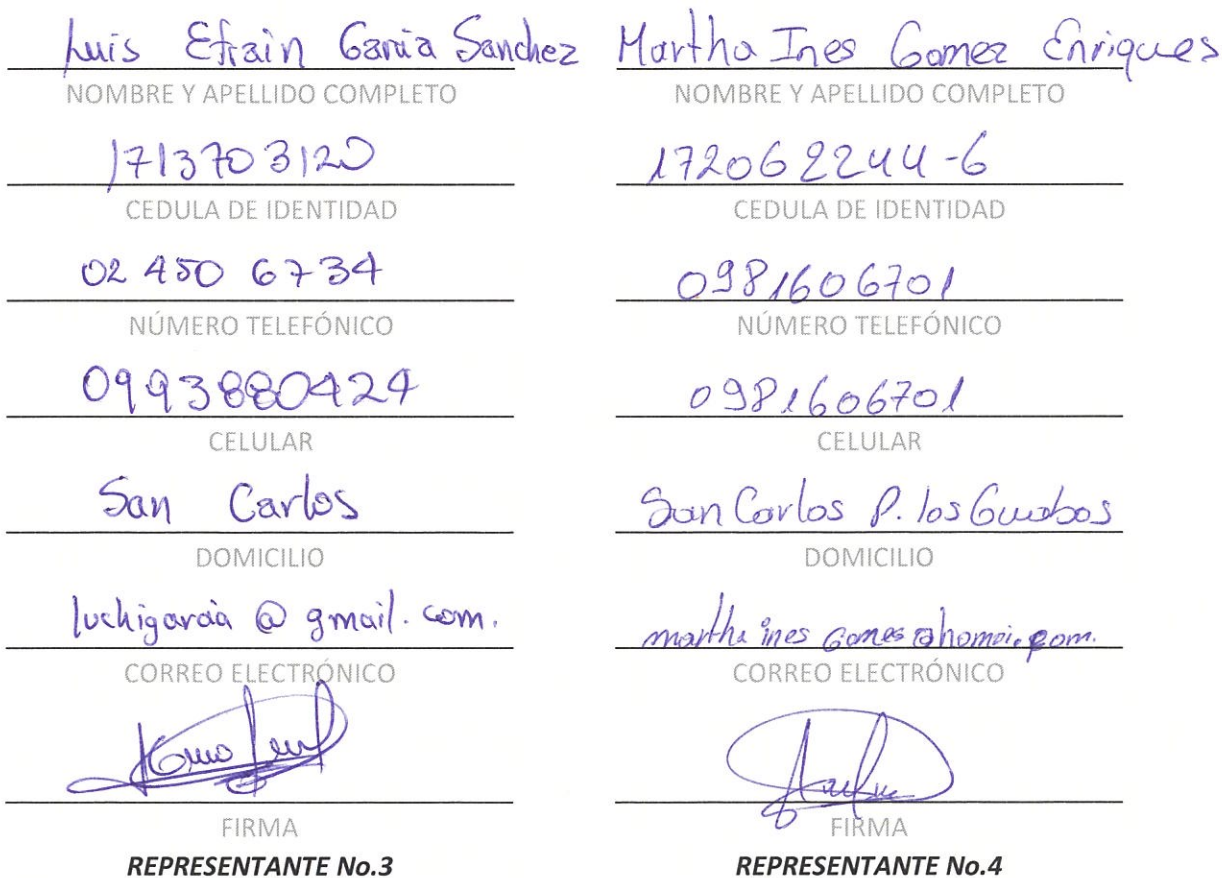 Luis Efrain Garcia Sanchez
NOMBRE Y APELLIDO COMPLETO
1713703120
CEDULA DE IDENTIDAD
02 450 6734
NÚMERO TELEFÓNICO
0993880424
CELULAR
San Carlos
DOMICILIO
luchigarcia @ gmail.com.
CORREO ELECTRÓNICO
FIRMA
REPRESENTANTE No.3
Martha Ines Gomez Enriques
NOMBRE Y APELLIDO COMPLETO
172062244-6
CEDULA DE IDENTIDAD
0981606701
NÚMERO TELEFÓNICO
0981606701
CELULAR
San Carlos P. los Guabos
DOMICILIO
martha ines gomes
CORREO ELECTRÓNICO
FIRMA
REPRESENTANTE No.4